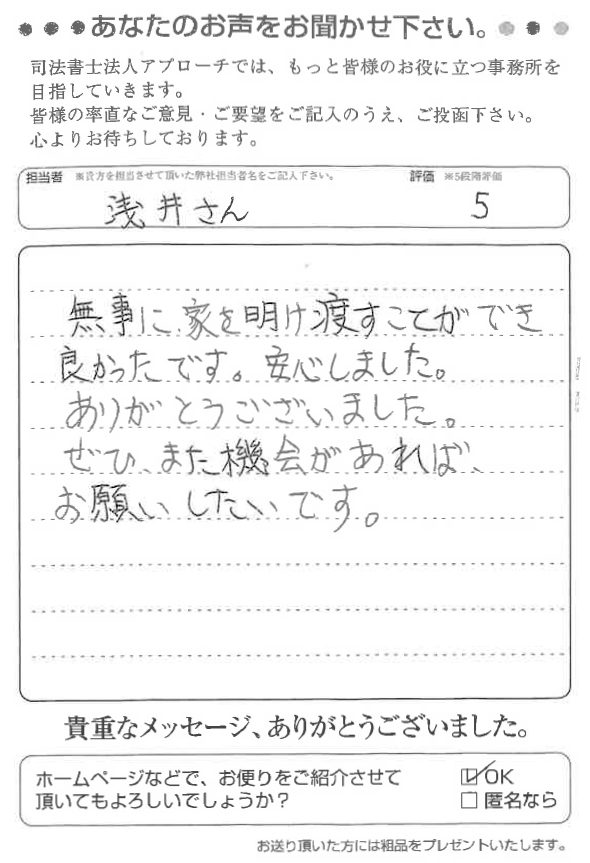 あなたのお声をお聞かせ下さい。
司法書士法人アプローチでは、もっと皆様のお役に立つ事務所を
目指していきます。
皆様の率直なご意見・ご要望をご記入のうえ、ご投函下さい。
心よりお待ちしております。
担当者 ※貴方を担当させて頂いた弊社担当者名をご記入下さい。 評価 ※5段階評価
浅井さん 5
無事に、家を明け渡すことができ
良かったです。安心しました。
ありがとうございました。
ぜひ、また機会があれば、
お願いしたいです。
貴重なメッセージ、ありがとうございました。
ホームページなどで、お便りをご紹介させて
頂いてもよろしいでしょうか？
☑OK
□匿名なら
お送り頂いた方には粗品をプレゼントいたします。